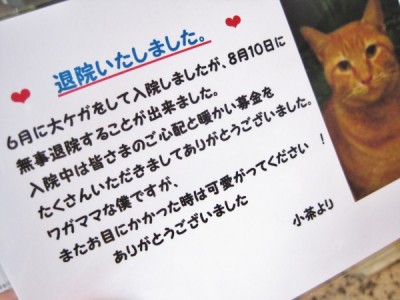 退院いたしました。
6月に大ケガをして入院しましたが、8月10日に
無事退院することが出来ました。
入院中は皆さまのご心配と暖かい募金を
たくさんいただきましてありがとうございました。
ワガママな僕ですが、
またお目にかかった時は可愛がってください !
ありがとうございました
小茶より